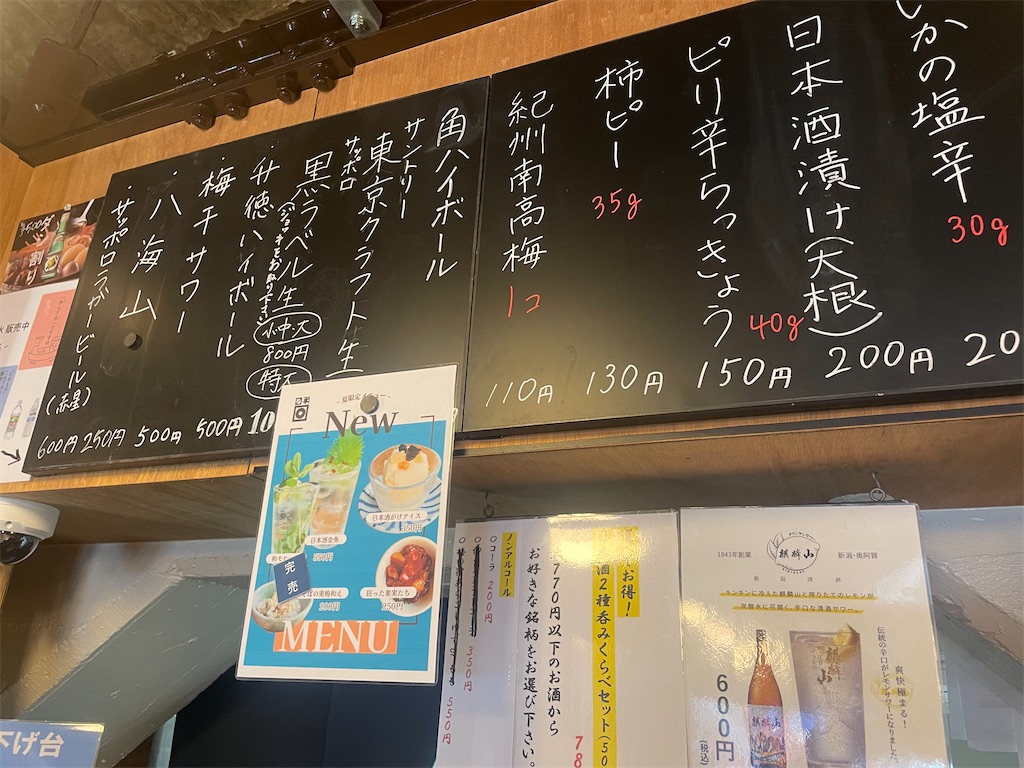 いかの塩辛
30g
20
日本酒漬け(大根)
200円
ピリ辛らっきょう
40g
150円
柿ピー
35g
130円
紀州南高梅
1コ
110円
角ハイボール
サントリー
東京クラフト生
サッポロ
黒ラベル生
小・中・大
800円
特大
10
升徳ハイボール
500円
梅干サワー
500円
八海山
250円
サッポロラガービール(赤星)
600円
¥500
割り
販売中
夏限定メニュー
New
日本酒がけアイス
350円
日本酒金魚
550円
完売
狂った果実たち
250円
200円
MENU
お得!
酒2種呑みくらべセット(50
770円以下のお酒から
お好きな銘柄をお選び下さい。
78
ノンアルコール
○コーラ 200円
350円
550円
1843年創業
麒麟山
新潟・奥阿賀
キンキンに冷えた麒麟山と搾りたてのレモンが
炭酸水に花開く、辛口な清酒サワー
爽快極まる!
伝統の辛口がレモンサワーになりました
麒麟山
麒麟山
600円
(税込)
下げ台